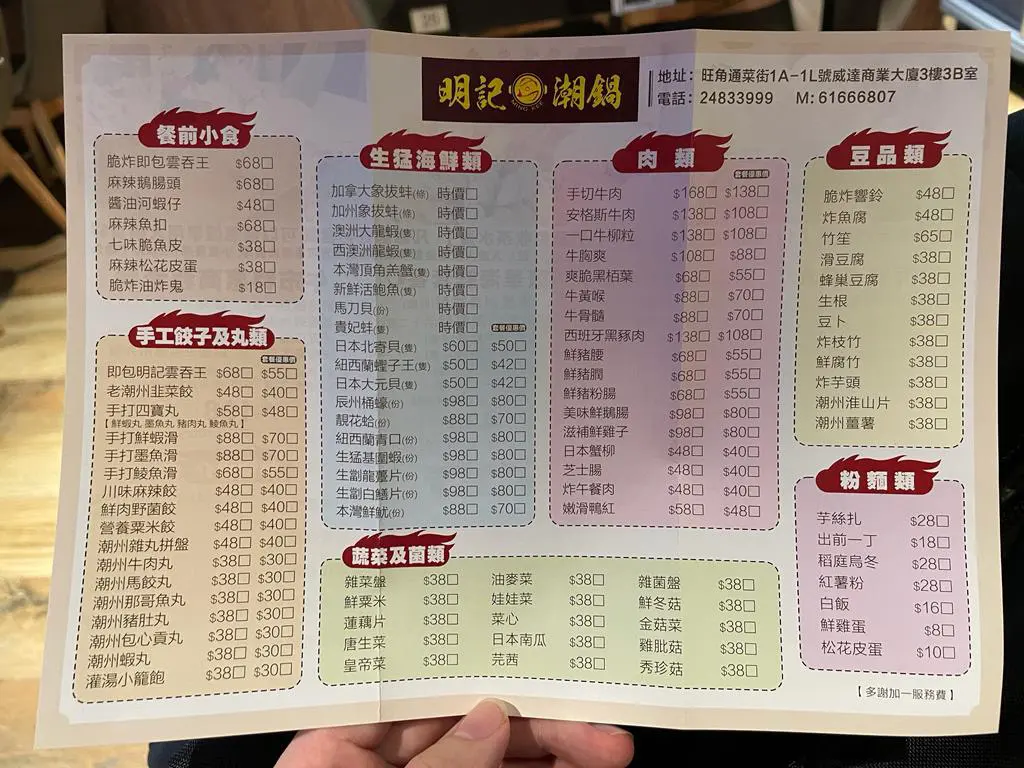 明記 潮鍋
MING KEE
地址：旺角通菜街1A-1L號威達商業大廈3樓3B室
電話：24833999 M:61666807
餐前小食
脆炸即包雲吞王 $68□
麻辣鵝腸頭 $68□
醬油河蝦仔 $48□
麻辣魚扣 $68□
七味脆魚皮 $38□
麻辣松花皮蛋 $38□
脆炸油炸鬼 $18□
手工餃子及丸類
套餐優惠價
即包明記雲吞王 $68□ $55□
老潮州韭菜餃 $48□ $40□
手打四寶丸 $58□ $48□
【鮮蝦丸 墨魚丸 豬肉丸 鯪魚丸】
手打鮮蝦滑 $88□ $70□
手打墨魚滑 $88□ $70□
手打鯪魚滑 $68□ $55□
川味麻辣餃 $48□ $40□
鮮肉野菌餃 $48□ $40□
營養粟米餃 $48□ $40□
潮州雜丸拼盤 $48□ $40□
潮州牛肉丸 $38□ $30□
潮州馬餃丸 $38□ $30□
潮州那哥魚丸 $38□ $30□
潮州豬肚丸 $38□ $30□
潮州包心貢丸 $38□ $30□
潮州蝦丸 $38□ $30□
灌湯小籠飽 $38□ $30□
生猛海鮮類
加拿大象拔蚌(條) 時價□
加州象拔蚌(條) 時價□
澳洲大龍蝦(隻) 時價□
西澳洲龍蝦(隻) 時價□
本灣頂角羔蟹(隻) 時價□
新鮮活鮑魚(隻) 時價□
馬刀貝(份) 時價□
貴妃蚌(隻) 時價□ 套餐優惠價
日本北寄貝(隻) $60□ $50□
紐西蘭蟶子王(隻) $50□ $42□
日本大元貝(隻) $50□ $42□
辰州桶蠔(份) $98□ $80□
靚花蛤(份) $88□ $70□
紐西蘭青口(份) $98□ $80□
生猛基圍蝦(份) $98□ $80□
生劏龍躉片(份) $98□ $80□
生劏白鱔片(份) $98□ $80□
本灣鮮魷(份) $88□ $70□
肉類
套餐優惠價
手切牛肉 $168□ $138□
安格斯牛肉 $138□ $108□
一口牛柳粒 $138□ $108□
牛胸爽 $108□ $88□
爽脆黑栢葉 $68□ $55□
牛黃喉 $88□ $70□
牛骨髓 $88□ $70□
西班牙黑豚肉 $138□ $108□
鮮豬腰 $68□ $55□
鮮豬膶 $68□ $55□
鮮豬粉腸 $68□ $55□
美味鮮鵝腸 $98□ $80□
滋補鮮雞子 $98□ $80□
日本蟹柳 $48□ $40□
芝士腸 $48□ $40□
炸午餐肉 $48□ $40□
嫩滑鴨紅 $58□ $48□
豆品類
脆炸響鈴 $48□
炸魚腐 $48□
竹笙 $65□
滑豆腐 $38□
蜂巢豆腐 $38□
生根 $38□
豆卜 $38□
炸枝竹 $38□
鮮腐竹 $38□
炸芋頭 $38□
潮州淮山片 $38□
潮州薑薯 $38□
蔬菜及菌類
雜菜盤 $38□ 油麥菜 $38□ 雜菌盤 $38□
鮮粟米 $38□ 娃娃菜 $38□ 鮮冬菇 $38□
蓮藕片 $38□ 菜心 $38□ 金菇菜 $38□
唐生菜 $38□ 日本南瓜 $38□ 雞肶菇 $38□
皇帝菜 $38□ 芫茜 $38□ 秀珍菇 $38□
粉麵類
芋絲扎 $28□
出前一丁 $18□
稻庭烏冬 $28□
紅薯粉 $28□
白飯 $16□
鮮雞蛋 $8□
松花皮蛋 $10□
【多謝加一服務費】